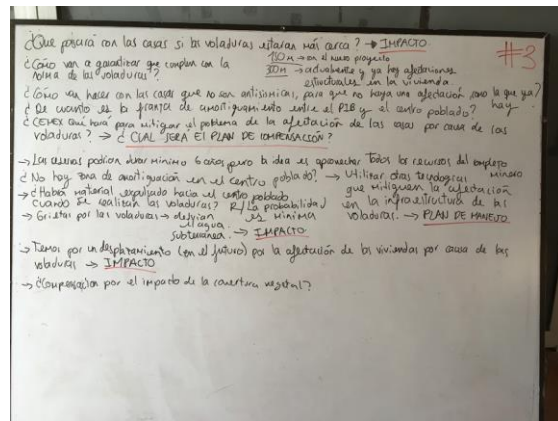 ¿Que pasará con las casas si las voladuras estaran más cerca? → IMPACTO
#3
¿Cómo van a garantizar que cumplen con la norma de las voladuras?
150 m → en el nuevo proyecto
300 m → actualmente y ya hay afectaciones estructurales en la vivienda
¿Cómo van hacer con las casas que no son antisismicas, para que no haya una afectación como la que ya hay?
¿De cuanto es la franja de amortiguamiento entre el PIB y el centro poblado?
¿CEMEX Qué hará para mitigar el problema de la afectación de las casas por causa de las
voladuras? → ¿CUAL SERA El PLAN DE COMPENSACIÓN?
→ Las casas podrian durar minimo 6 años pero la idea es aprovechar todos los recursos del complejo minero
¿No hay zona de amortiguación en el centro poblado? → Utilizar otras tecnologias
que mitiguen la afectación
en la infraestructura de las
voladuras. → PLAN DE MANEJO
→ ¿Habrá material expulsado hacia el centro poblado
cuando se realizan las voladuras? R/ La probabilidad
es minima
→ Grietas por las voladuras → desvian
el agua
subterránea. → IMPACTO
→ Temor por un desplazamiento (en el futuro) por la afectación de las viviendas por causa de las
voladuras → IMPACTO
→ ¿Compensación por el impacto de la cobertura vegetal?